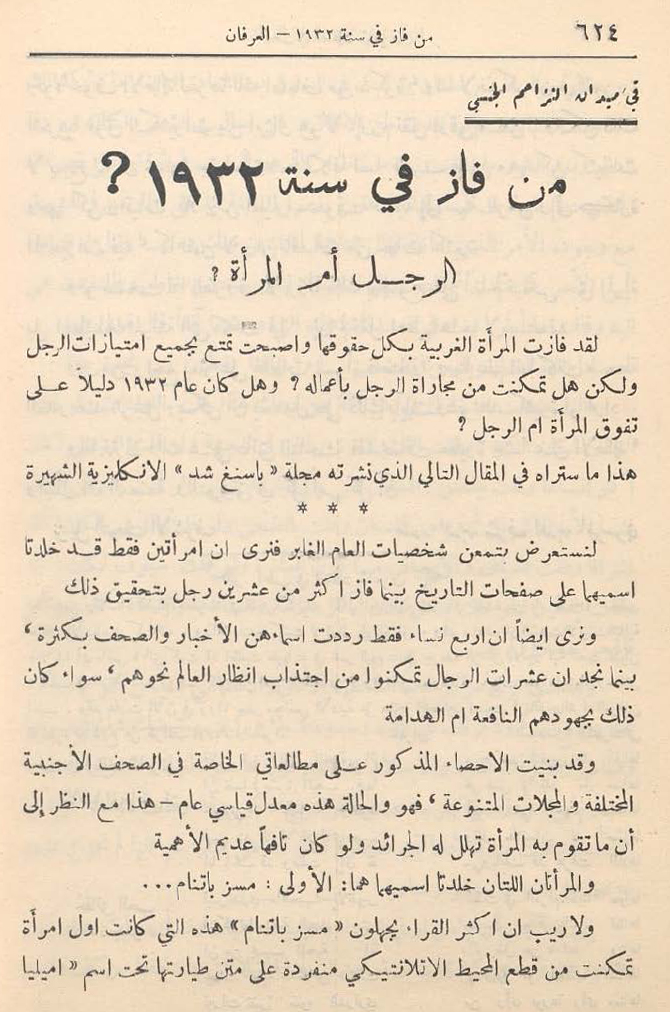 ٦٢٤
من فاز في سنة ١٩٣٢ – العرفان
في ميدان التزاحم الجنسي
من فاز في سنة ١٩٣٢ ?
الرجل أم المرأة ?
لقد فازت المرأة الغربية بكل حقوقها واصبحت تتمتع بجميع امتيازات الرجل
ولكن هل تمكنت من مجاراة الرجل بأعماله ? وهل كان عام ١٩٣٢ دليلاً على
تفوق المرأة ام الرجل ?
هذا ما ستراه في المقال التالي الذي نشرته مجلة « باسنغ شد » الانكليزية الشهيرة
* * *
لنستعرض بتمعن شخصيات العام الغابر فنرى ان امرأتين فقط قد خلدتا
اسميهما على صفحات التاريخ بينما فاز اكثر من عشرين رجل بتحقيق ذلك
ونرى ايضاً ان اربع نساء فقط رددت اسماءهن الأخبار والصحف بكثرة ،
بينما نجد ان عشرات الرجال تمكنوا من اجتذاب انظار العالم نحوهم ، سواء كان
ذلك بجهودهم النافعة ام الهدامة
وقد بنيت الاحصاء المذكور على مطالعاتي الخاصة في الصحف الأجنبية
المختلفة والمجلات المتنوعة ، فهو والحالة هذه معدل قياسي عام – هذا مع النظر إلى
أن ما تقوم به المرأة تهلل له الجرائد ولو كان تافهاً عديم الأهمية
والمرأتان اللتان خلدتا اسميهما هما : الأولى : مسز باتنام ...
ولا ريب ان اكثر القراء يجهلون « مسز باتنام » هذه التي كانت اول امرأة
تمكنت من قطع المحيط الاتلانتيكي منفردة على متن طيارتها تحت اسم « اميليا